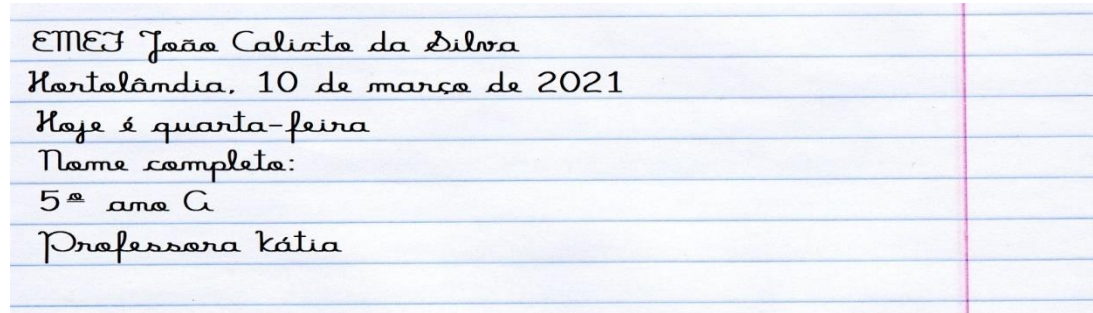 EMEF João Calixto da Silva
Hortolândia, 10 de março de 2021
Hoje é quarta-feira
Nome completo:
5º ano A
Professora Kátia